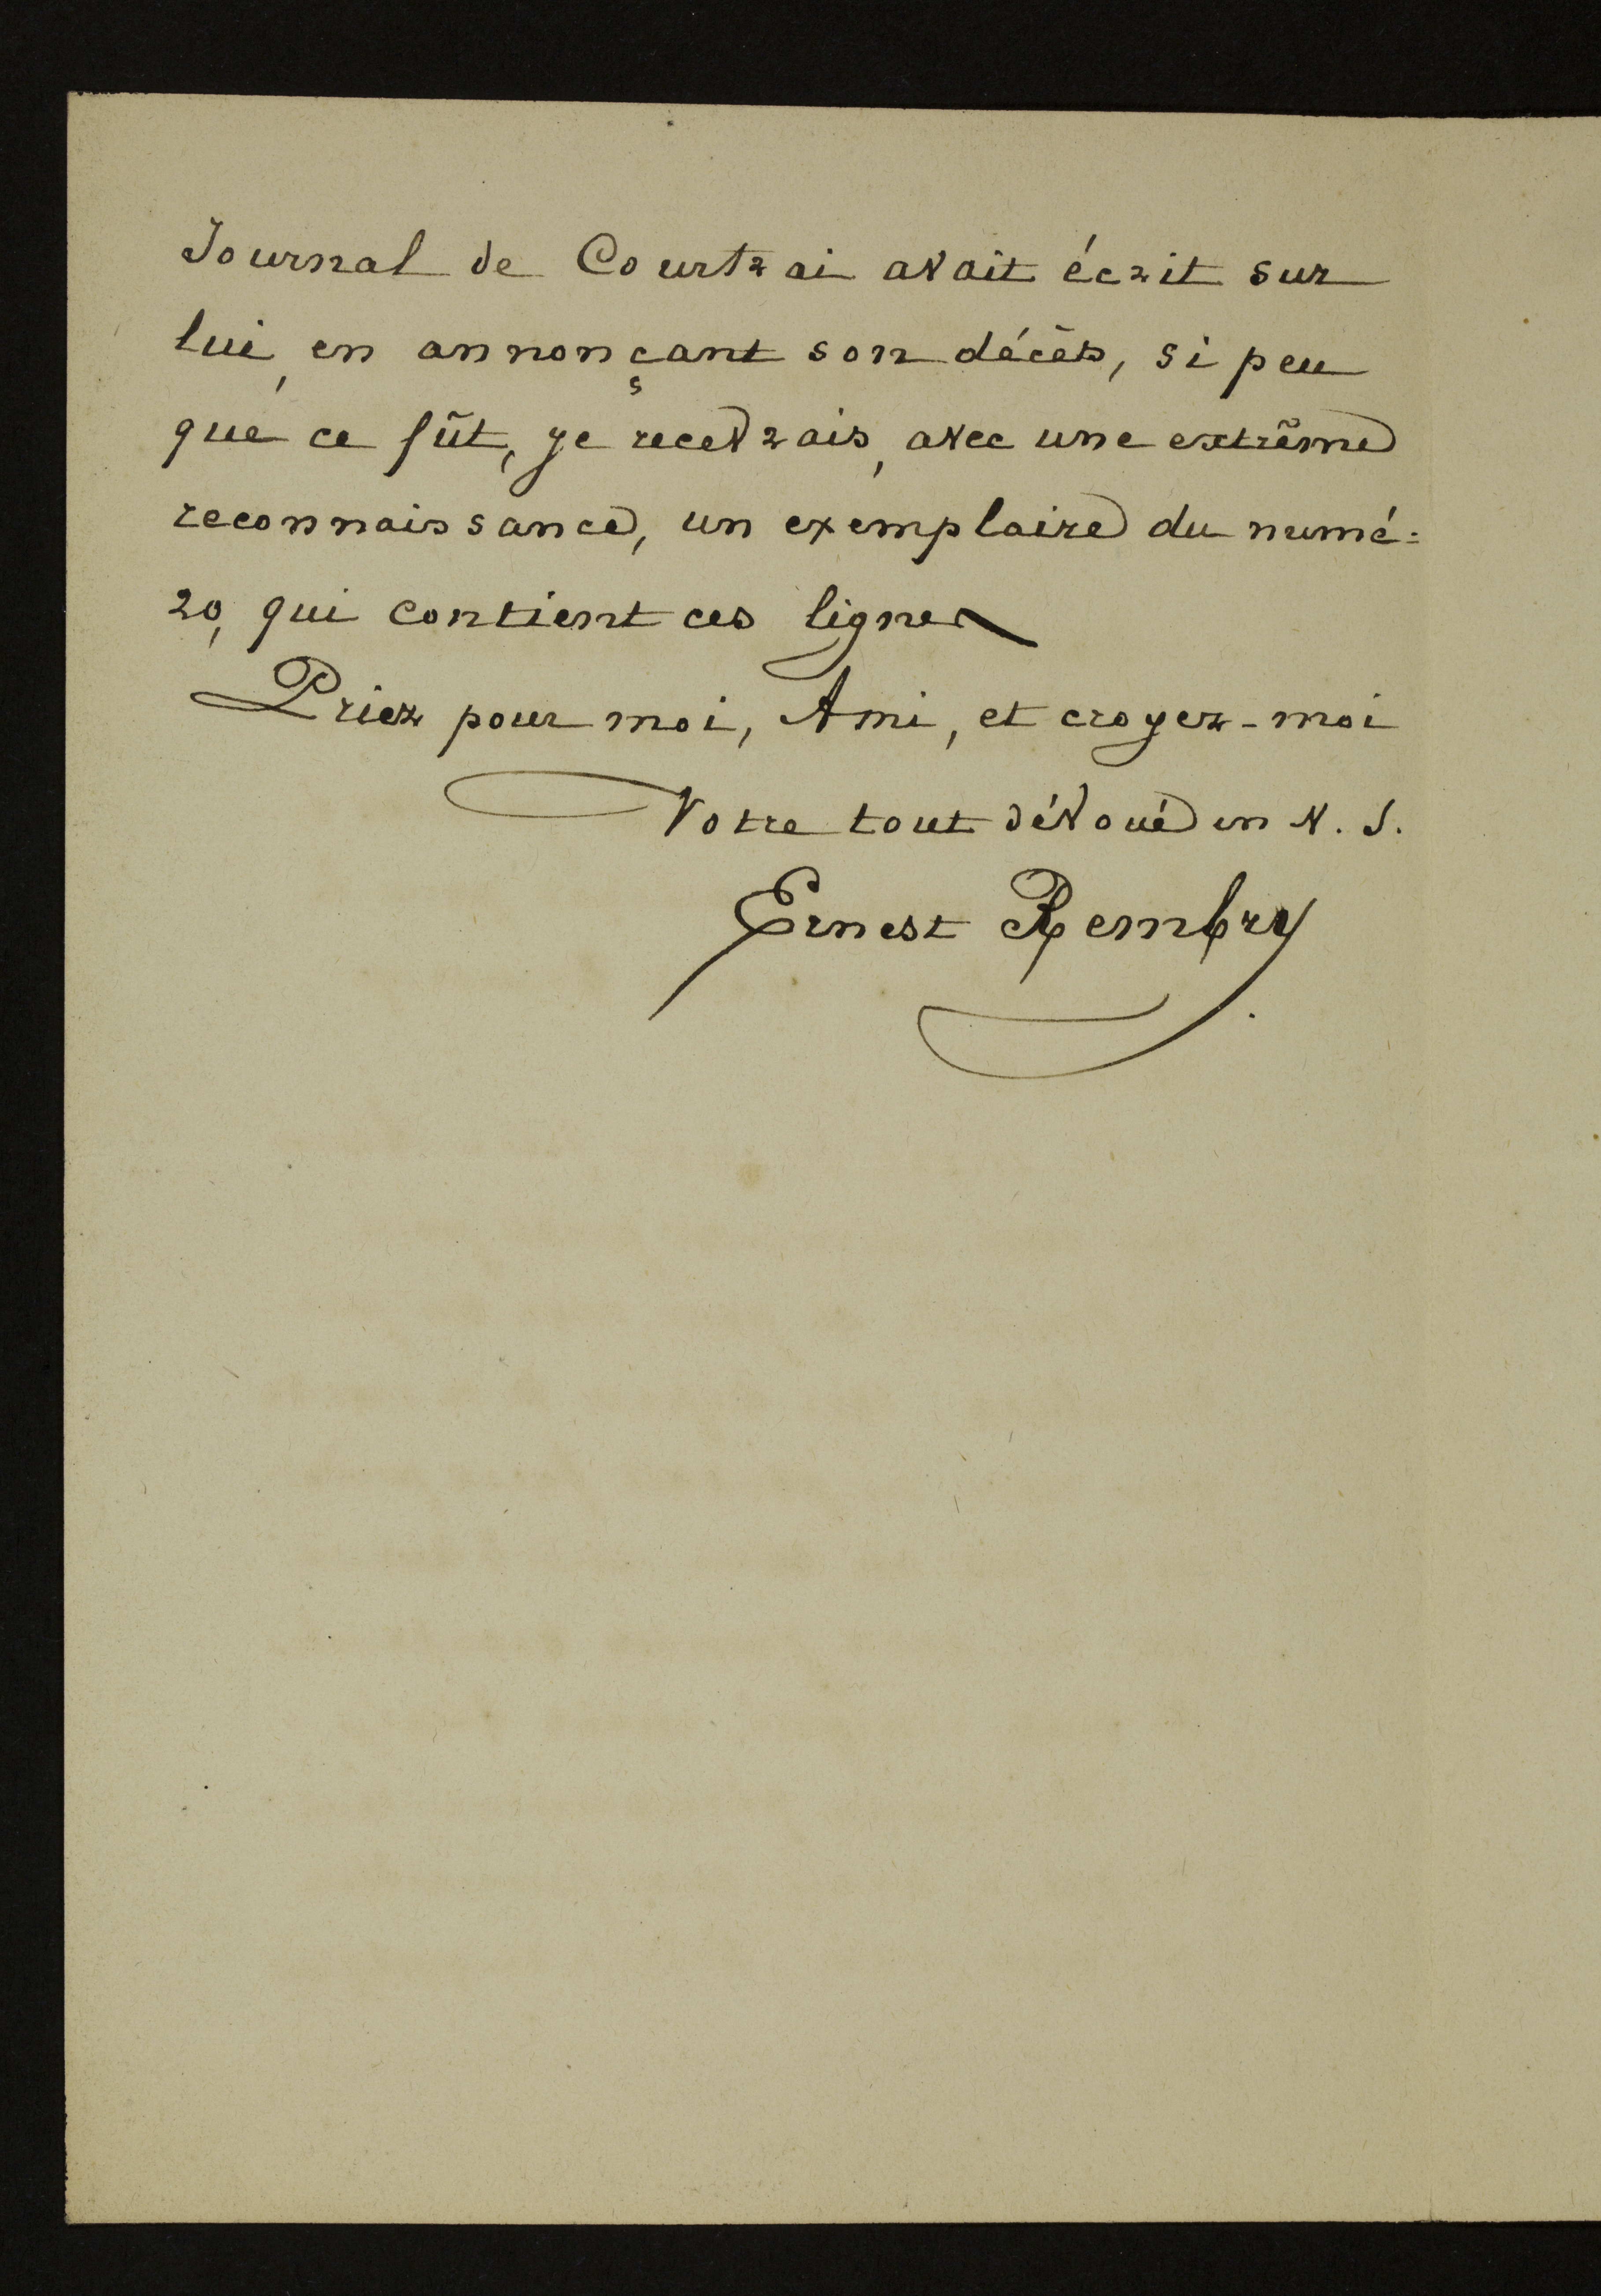 Journal de Courtrai avait écrit sur
lui, en annonçant son décès, si peu
que ce fût, je recevrais, avec une extrême
reconnaissance, un exemplaire du numé=
ro, qui contient ces lignes
Priez pour moi, Ami, et croyez-moi
Votre tout dévoué en N. S.
Ernest Rembry